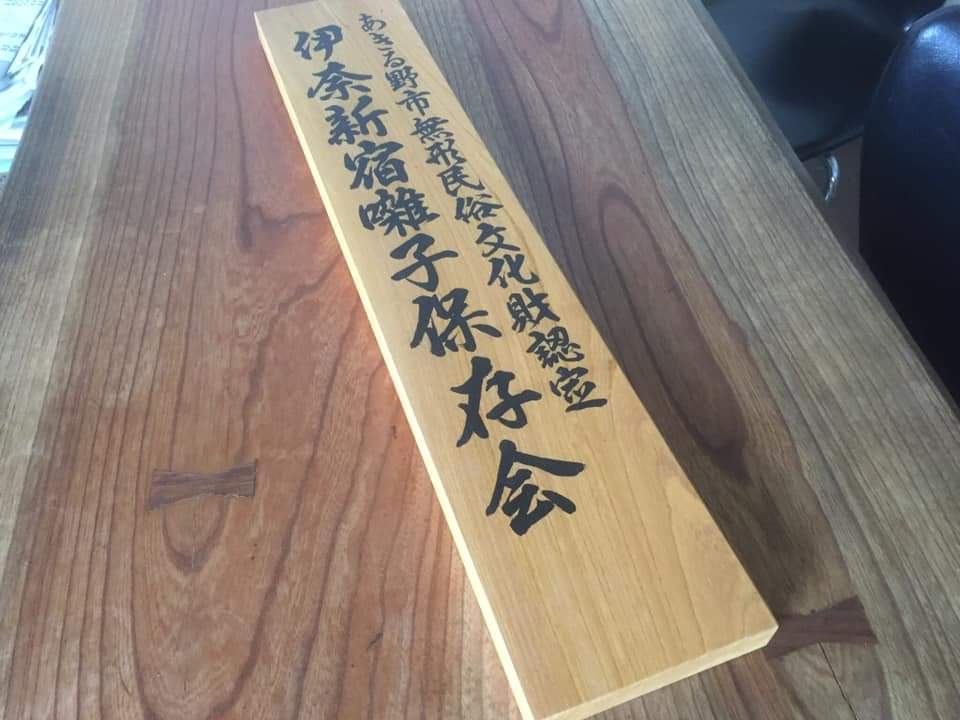 あきる野市無形民俗文化財認定
伊奈新宿囃子保存会